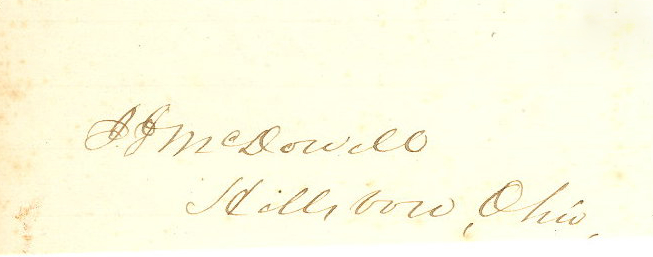 J. J. McDowell
Hillsboro, Ohio,